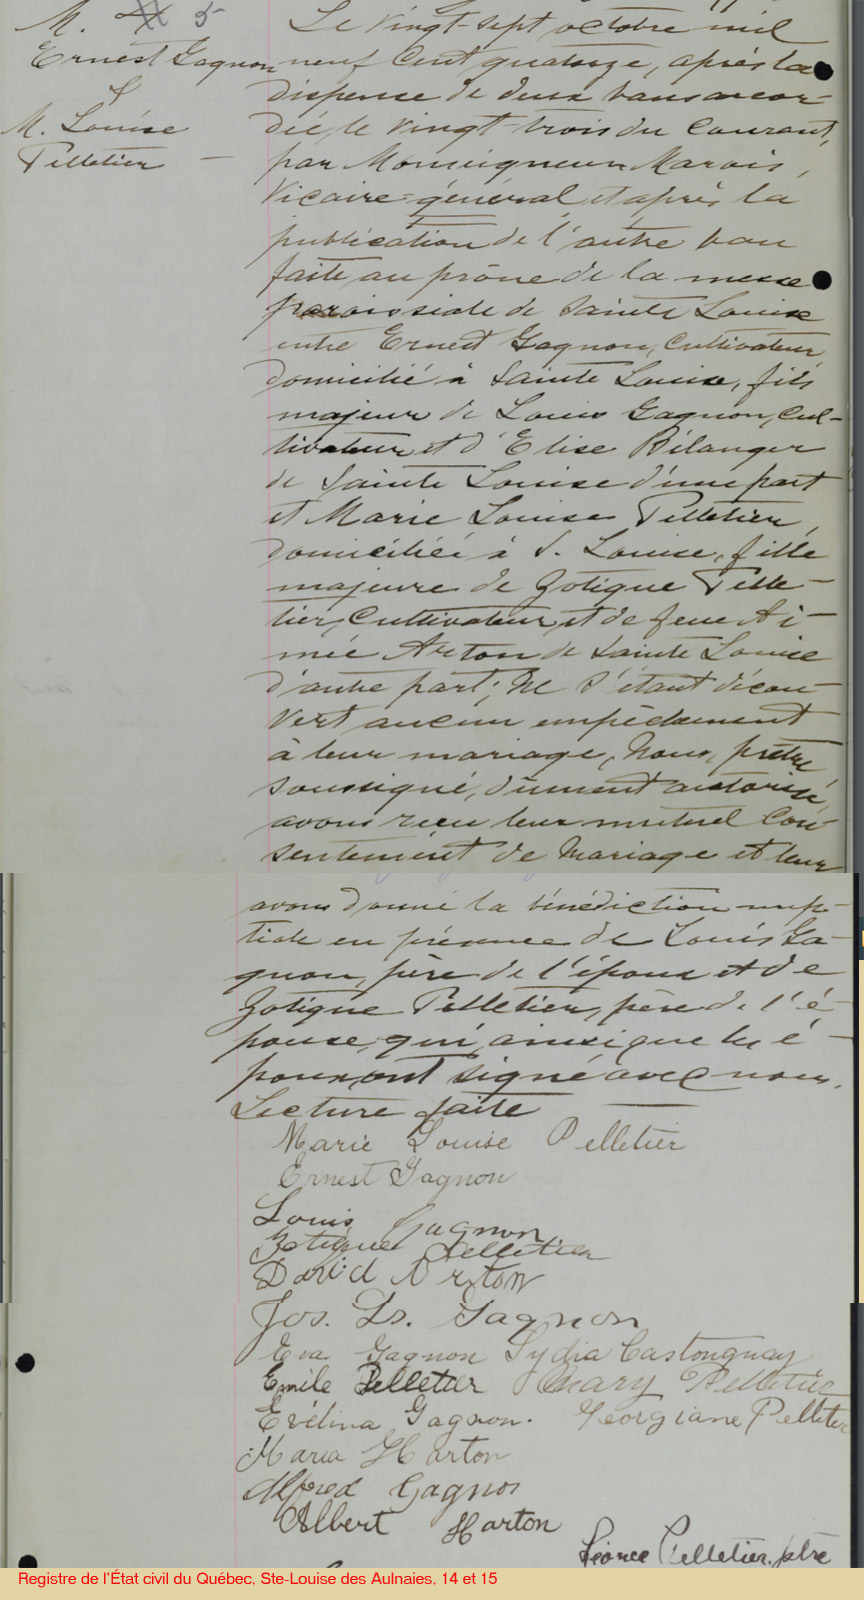 M. 5
Ernest Gagnon
&
M. Louise
Pelletier —
Le vingt-sept octobre mil
neuf cent quatorze, après la
dispense de deux bans accor-
dée, le vingt-trois du courant,
par Monseigneur Marois,
Vicaire-général, et après la
publication de l'autre ban
faite au prône de la messe
paroissiale de Sainte Louise
entre Ernest Gagnon, cultivateur,
domicilié à Sainte Louise, fils
majeur de Louis Gagnon, cul-
tivateur et d'Elise Bélanger
de Sainte Louise d'une part
et Marie Louise Pelletier,
domiciliée à S. Louise, fille
majeure de Zotique Pelle-
tier, cultivateur, et de feue Ai-
mée Arton de Sainte Louise
d'autre part; Ne s'étant décou-
vert aucun empêchement
à leur mariage, Nous, prêtre
soussigné, dûment autorisé,
avons reçu leur mutuel con-
sentement de mariage et leur
avons donné la bénédiction nup-
tiale en présence de Louis Ga-
gnon, père de l'époux et de
Zotique Pelletier, père de l'é-
pouse, qui, ainsi que les é-
poux, ont signé avec nous.
Lecture faite —
Marie Louise Pelletier
Ernest Gagnon
Louis Gagnon
Zotique Pelletier
David Arton
Jos. Ls. Gagnon
Eva Gagnon Lydia Castonguay
Emile Pelletier Mary Pelletier
Evélina Gagnon. Georgiane Pelletier
Maria Harton
Alfred Gagnon
Albert Harton
Léonce Pelletier, ptre
Registre de l'État civil du Québec, Ste-Louise des Aulnaies, 14 et 15